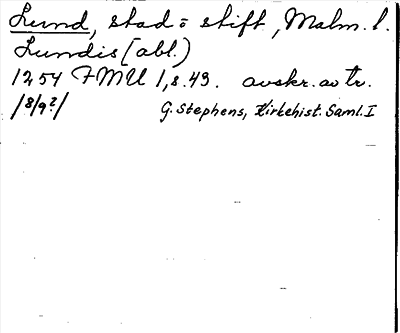 Lund, stad = stift, Malm. l.
Lundis (abl.)
1254 FMU 1, s. 43. avskr. av tr.
/8/9?/ G. Stephens, Kirkehist. Saml. I